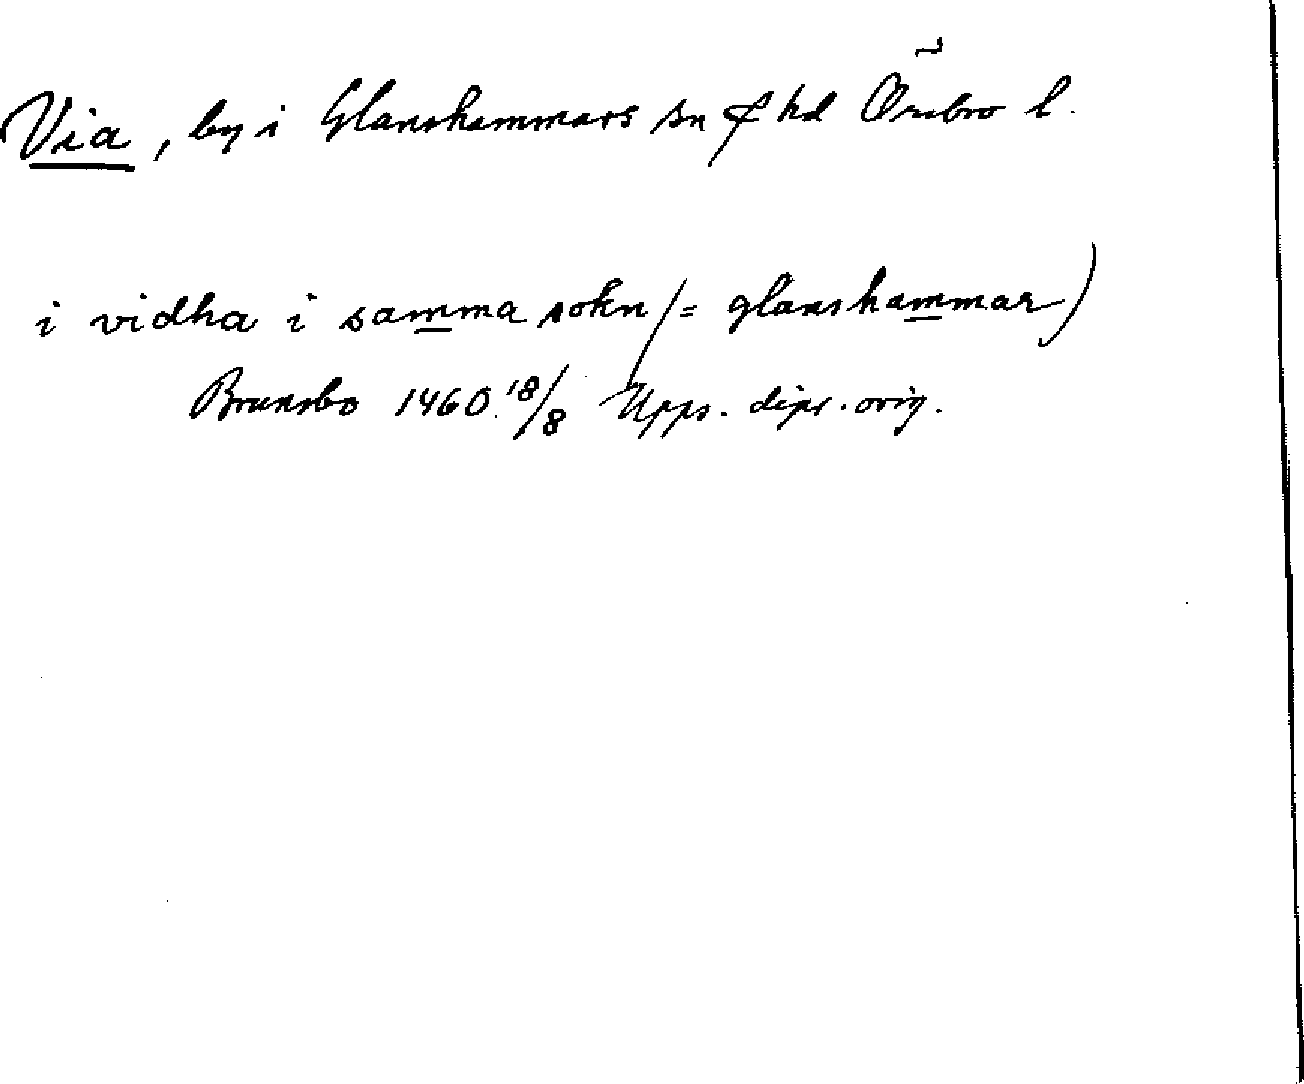 Via, by i Glanshammars sn & hd Örebro l.
i vidha i samma sokn (= glanshammar)
Brunsbo 1460 18/8 Upps. dipl. orig.